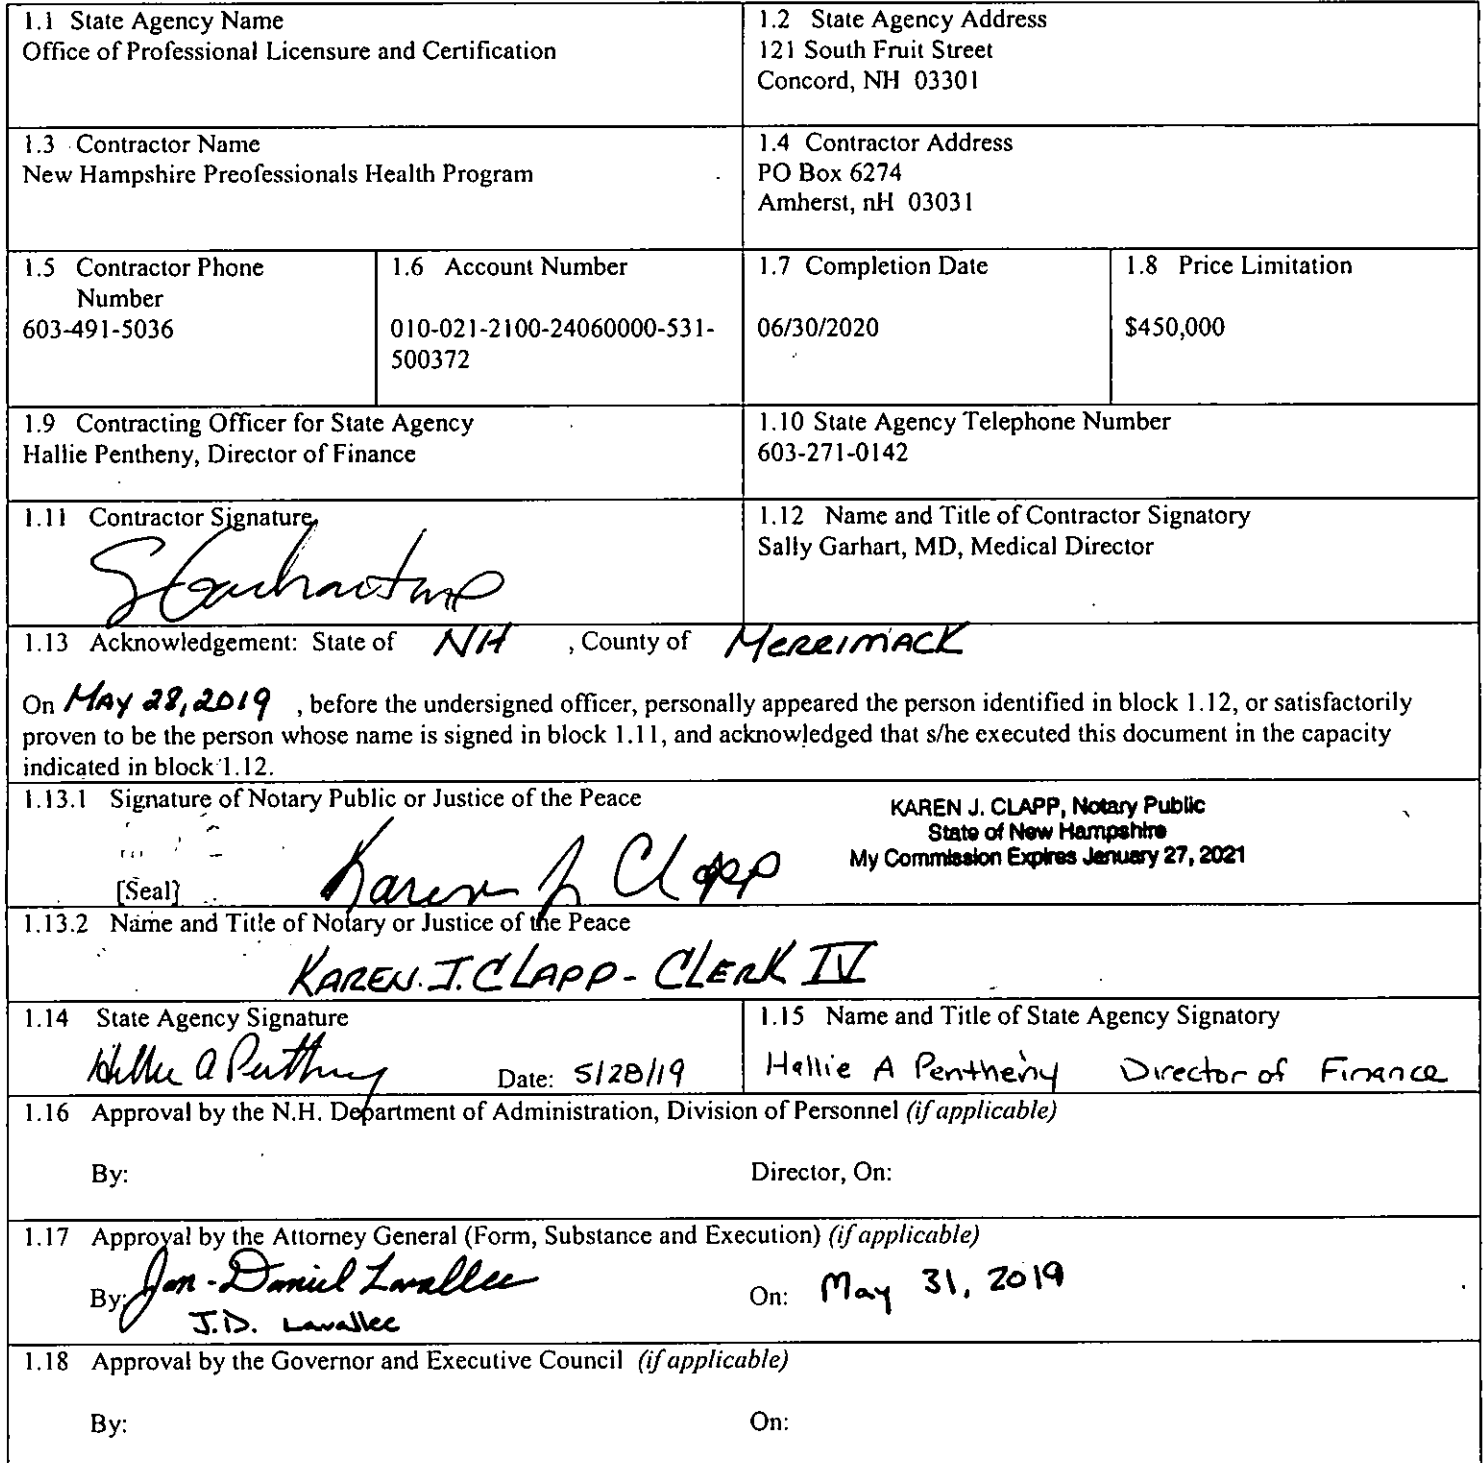 1.1 State Agency Name
Office of Professional Licensure and Certification
1.2 State Agency Address
121 South Fruit Street
Concord, NH 03301
1.3 Contractor Name
New Hampshire Preofessionals Health Program
1.4 Contractor Address
PO Box 6274
Amherst, nH 03031
1.5 Contractor Phone
Number
603-491-5036
1.6 Account Number
010-021-2100-24060000-531-
500372
1.7 Completion Date
06/30/2020
1.8 Price Limitation
$450,000
1.9 Contracting Officer for State Agency
Hallie Pentheny, Director of Finance
1.10 State Agency Telephone Number
603-271-0142
1.11 Contractor Signature
S Garhart MD
1.12 Name and Title of Contractor Signatory
Sally Garhart, MD, Medical Director
1.13 Acknowledgement: State of NH , County of MERRIMACK
On MAY 28, 2019 , before the undersigned officer, personally appeared the person identified in block 1.12, or satisfactorily
proven to be the person whose name is signed in block 1.11, and acknowledged that s/he executed this document in the capacity
indicated in block 1.12.
1.13.1 Signature of Notary Public or Justice of the Peace
KAREN J. CLAPP, Notary Public
State of New Hampshire
My Commission Expires January 27, 2021
[Seal] Karen J Clapp
1.13.2 Name and Title of Notary or Justice of the Peace
KAREN. J. CLAPP - CLERK IV
1.14 State Agency Signature
Hallie A Pentheny Date: 5/28/19
1.15 Name and Title of State Agency Signatory
Hallie A Pentheny Director of Finance
1.16 Approval by the N.H. Department of Administration, Division of Personnel (if applicable)
By: Director, On:
1.17 Approval by the Attorney General (Form, Substance and Execution) (if applicable)
By: Jan-Daniel Lavallee On: May 31, 2019
J.D. Lavallee
1.18 Approval by the Governor and Executive Council (if applicable)
By: On: